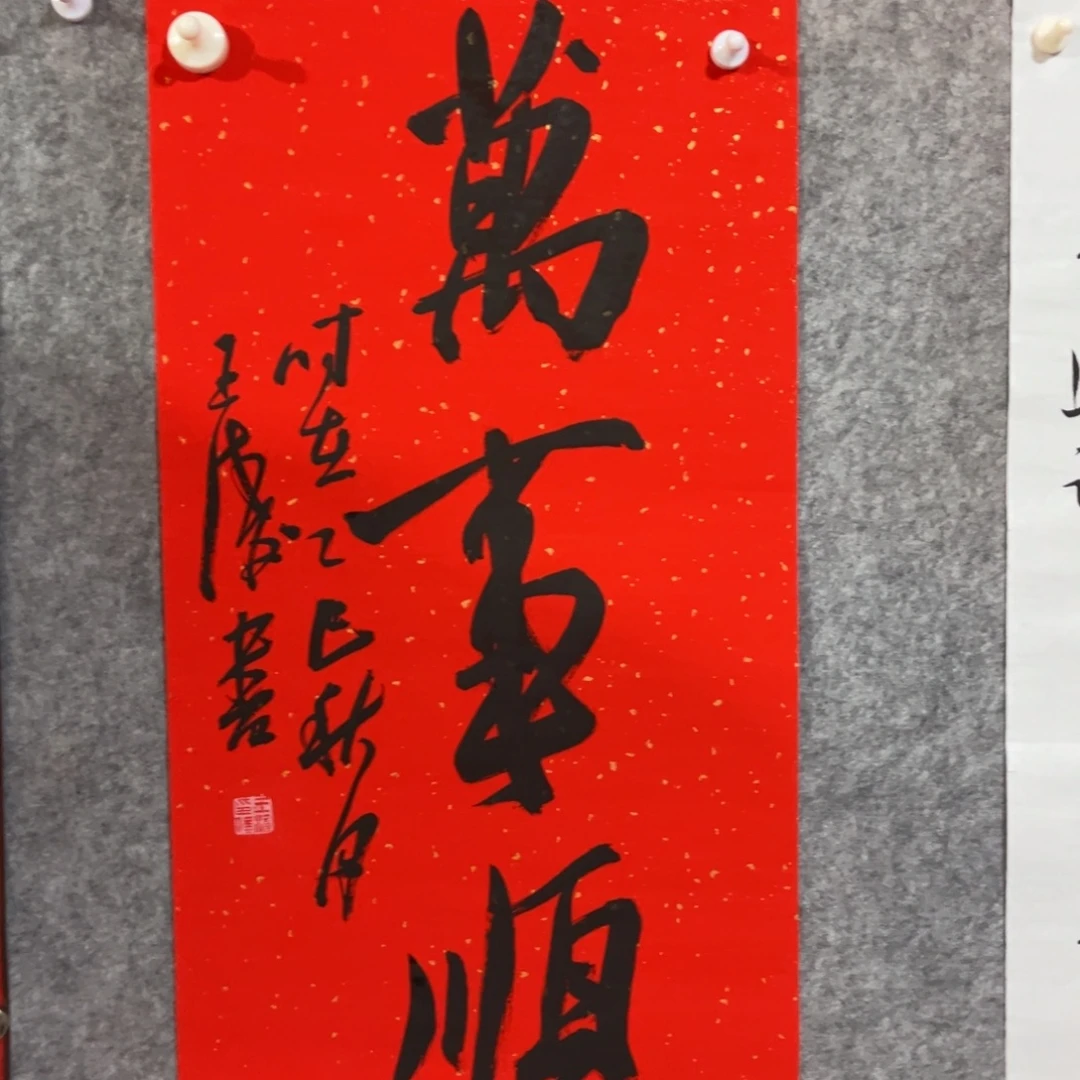 萬事順
時在乙巳秋月
王
書